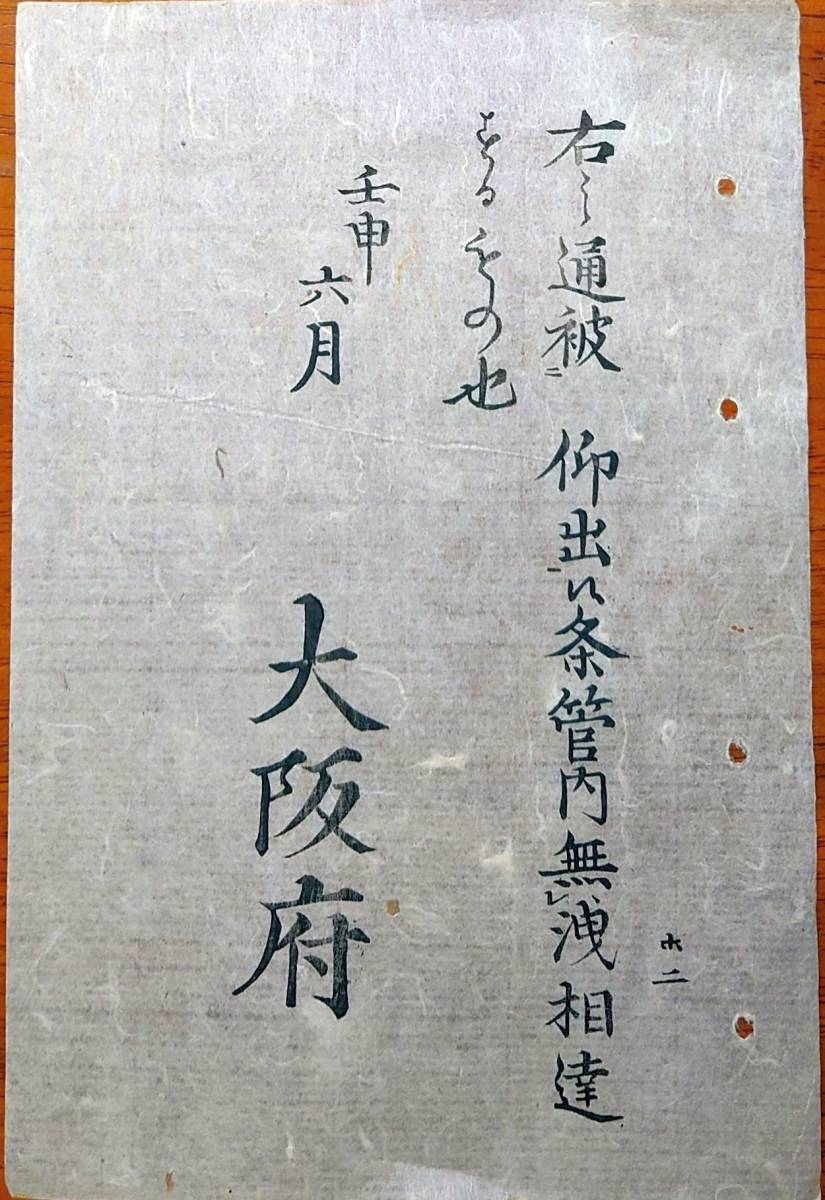 右之通被㆓ 仰出㆒候条管内無㆑洩相達
するもの也
壬申
六月
大阪府
二